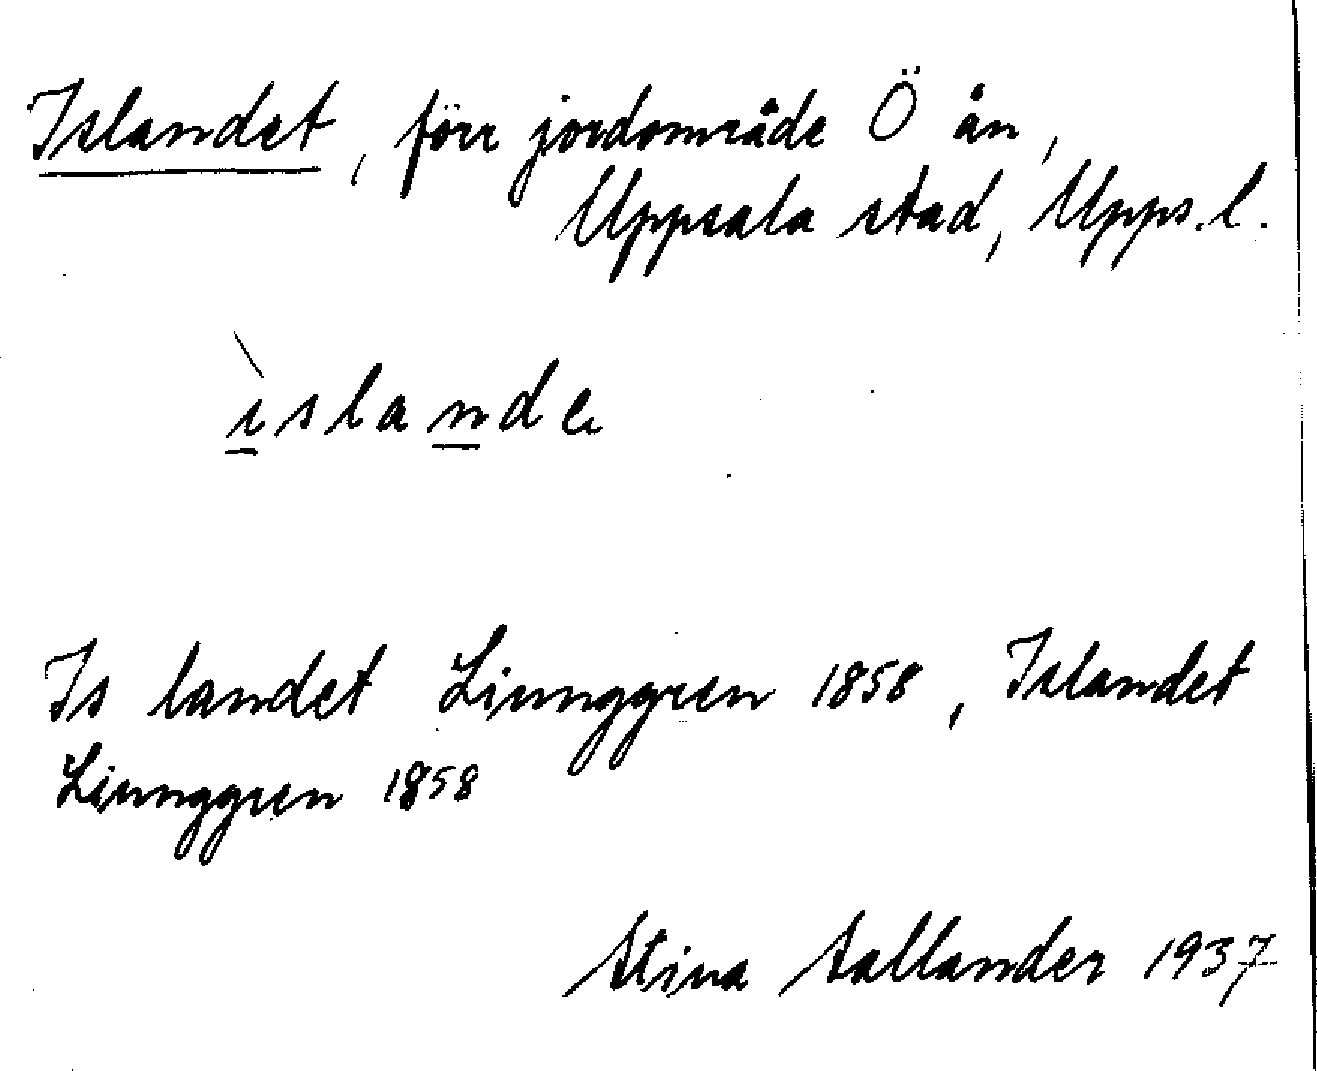 Islandet, förr jordområde Ö ån,
Uppsala stad, Upps. l.
ìslande
Is landet Liunggren 1858, Islandet
Liunggren 1858
Stina Sallander 1937